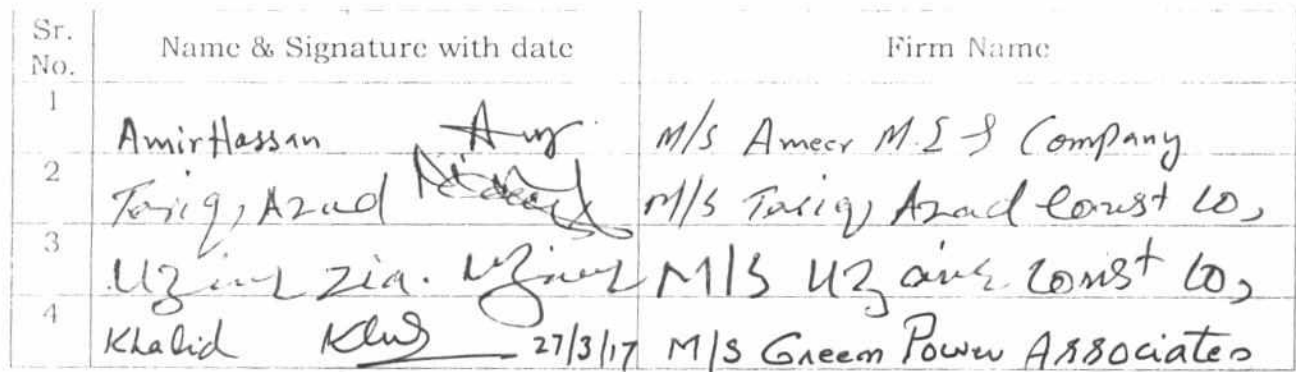 Sr. No. Name & Signature with date Firm Name
1 Amir Hassan M/S Ameer M.E.S Company
2 Tariq, Azad M/S Tariq, Azad Const Co,
3 Uzair Zia. M/S Uzair Const Co,
4 Khalid 27/3/17 M/S Green Power Associates